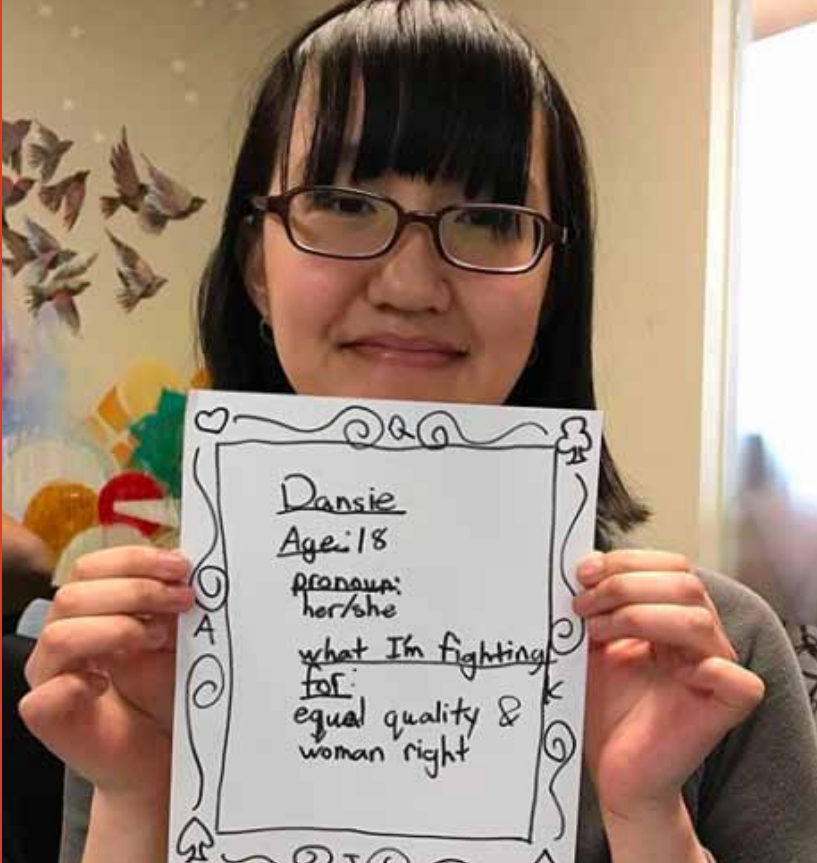 Q
Dansie
Age: 18
pronoun:
her/she
A
what I'm fighting
for:
K
equal quality &
woman right
J